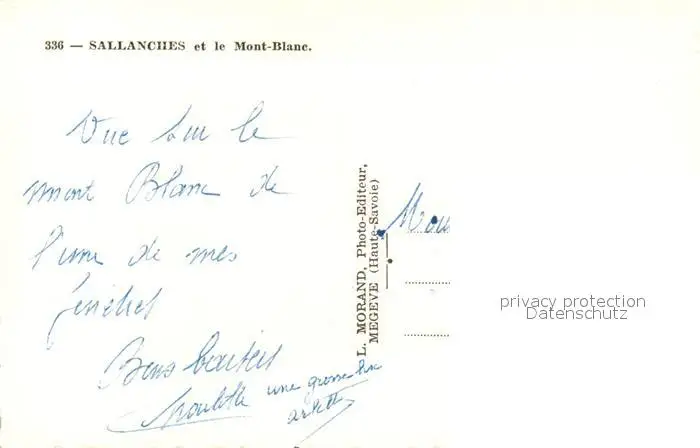 336 — SALLANCHES et le Mont-Blanc.
Vue sur le
mont Blanc de
l'une de mes
fenêtres
Bons baisers
une grosse bise
L. MORAND, Photo-Editeur,
MEGEVE (Haute-Savoie)
Mou
privacy protection
Datenschutz